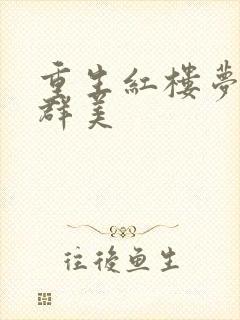 重生紅樓夢
群美
往後魚生